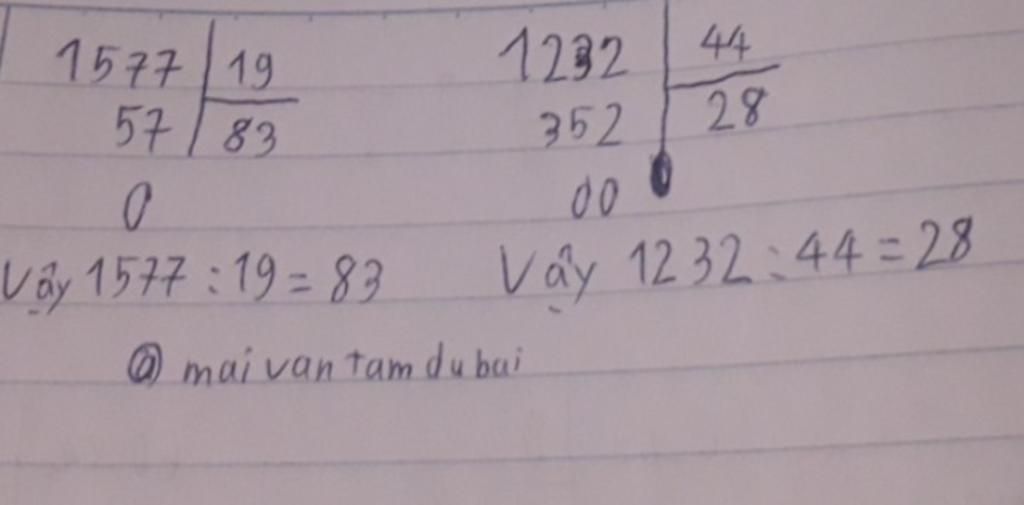 1577 19
57 83
0
Vậy 1577 : 19 = 83
1232 44
352 28
00
Vậy 1232 : 44 = 28
@ mai van tam du bai